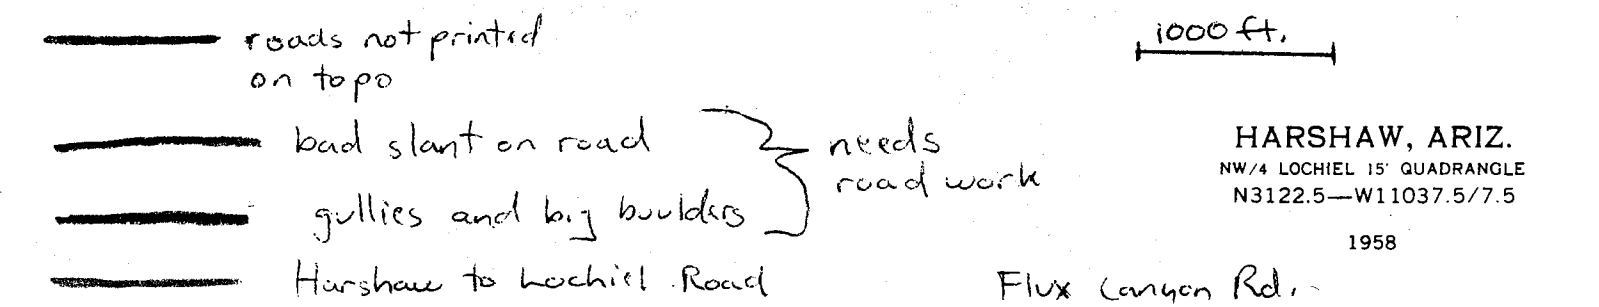 roads not printed
on topo
bad slant on road
gullies and big boulders
needs
road work
Harshaw to Lochiel Road
1000 ft.
HARSHAW, ARIZ.
NW/4 LOCHIEL 15' QUADRANGLE
N3122.5—W11037.5/7.5
1958
Flux Canyon Rd.